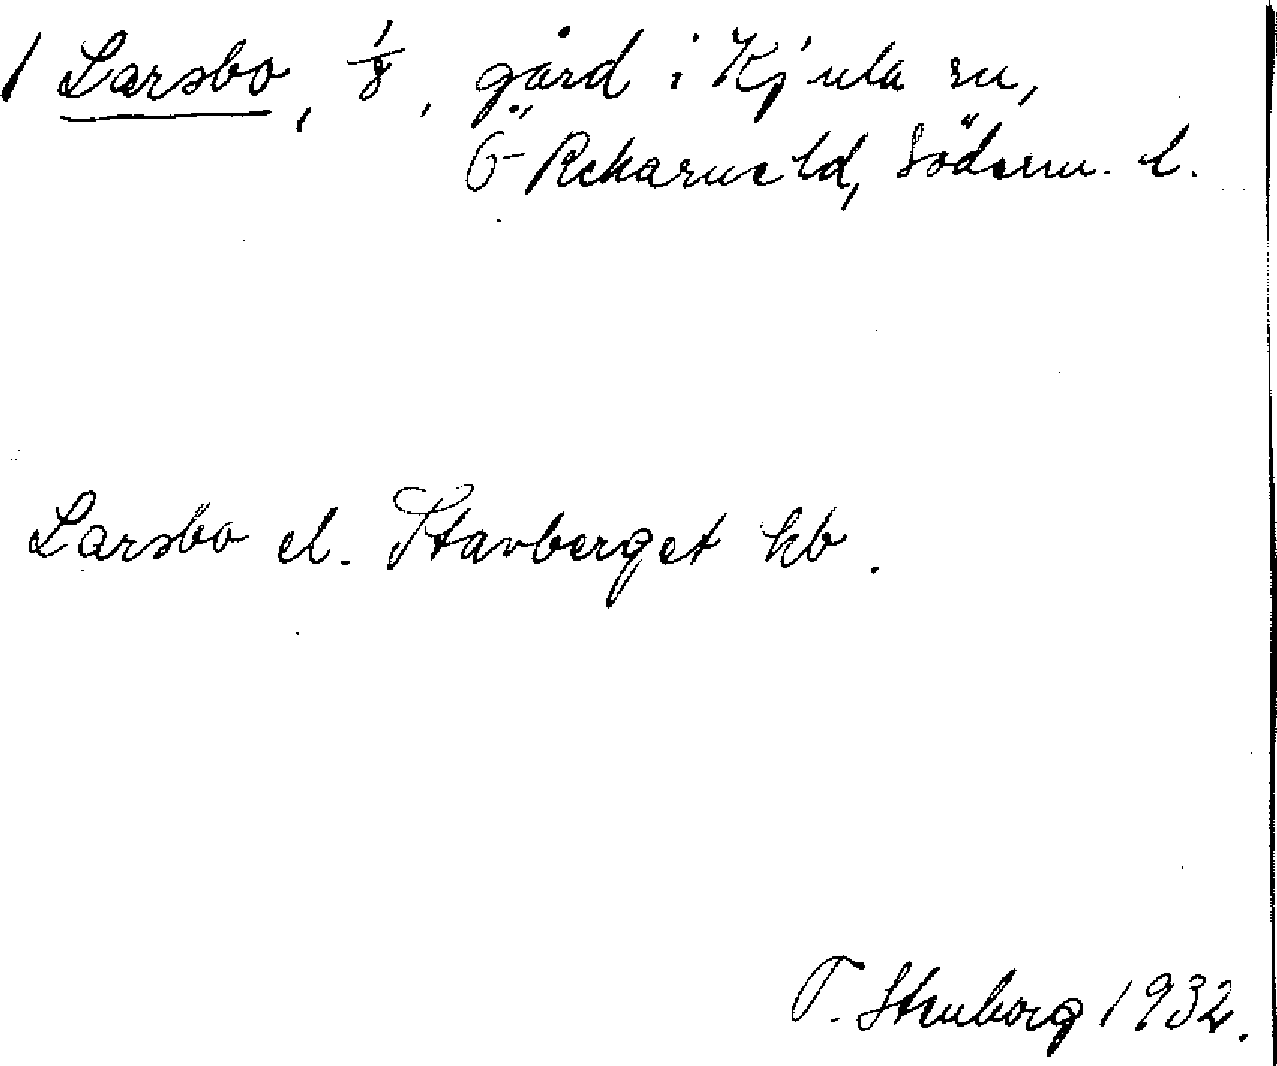 1 Larsbo, 1/8, gård i Kjula sn,
Ö-Rekarne hd, Söderm. l.
Larsbo el. Stavberget hb.
T. Stenborg 1932.